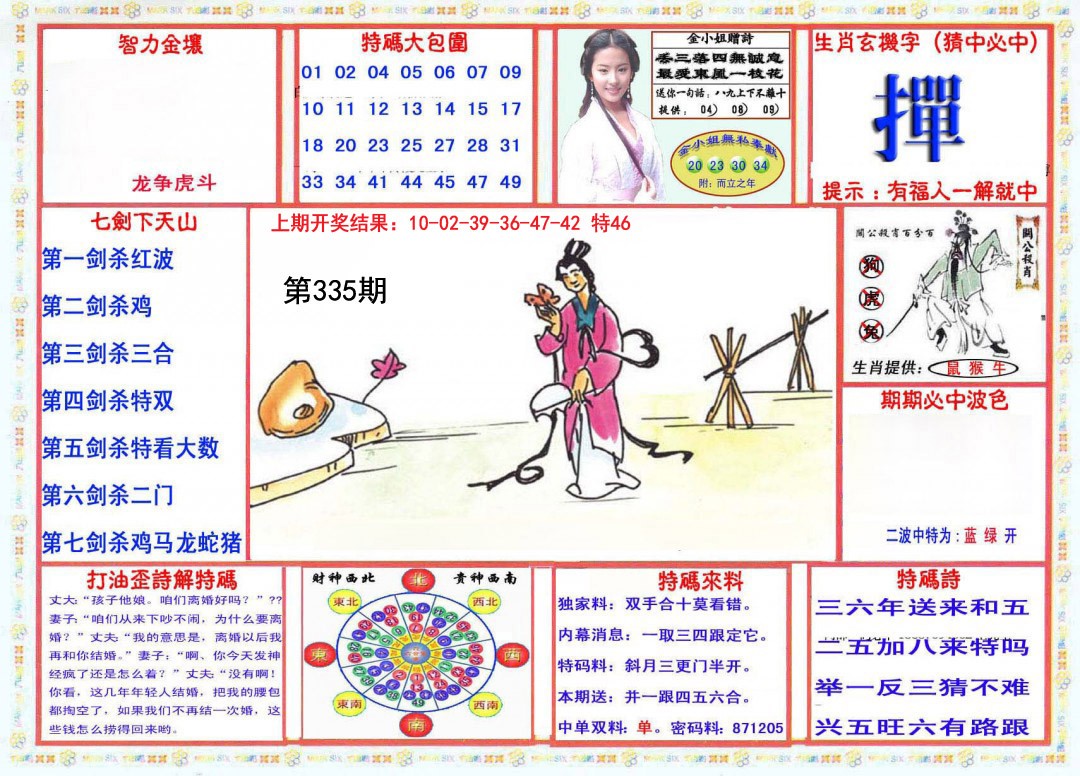 智力金壤
龙争虎斗
特碼大包圍
01 02 04 05 06 07 09
10 11 12 13 14 15 17
18 20 23 25 27 28 31
33 34 41 44 45 47 49
金小姐赠詩
丢三落四無誠意
最愛東風一枝花
送你一句話：八九上下不離十
提供： 04） 08） 09）
金小姐無私奉獻
20 23 30 34
附：而立之年
生肖玄機字（猜中必中）
撣
提示：有福人一解就中
七劍下天山
第一剑杀红波
第二剑杀鸡
第三剑杀三合
第四剑杀特双
第五剑杀特看大数
第六剑杀二门
第七剑杀鸡马龙蛇猪
上期开奖结果：10-02-39-36-47-42 特46
第335期
關公殺肖百分百
關公殺肖
狗
虎
兔
生肖提供： 鼠 猴 牛
期期必中波色
二波中特为：蓝 绿 开
打油歪詩解特碼
丈夫：“孩子他娘。咱们离婚好吗？”??
妻子：“咱们从来下吵不闹，为什么要离
婚？”丈夫：“我的意思是，离婚以后我
再和你结婚。”妻子：“啊、你今天发神
经疯了还是怎么着？”丈夫：“没有啊！
你看，这几年年轻人结婚，把我的腰包
都掏空了，如果我们不再结一次婚，这
些钱怎么捞得回来哟。
财神西北
貴神西南
北
東北
西北
東
西
東南
西南
南
特碼來料
独家料：双手合十莫看错。
内幕消息：一取三四跟定它。
特码料：斜月三更门半开。
本期送：井一跟四五六合。
中单双料：单。密码料：871205
特碼詩
三六年送来和五
二五加八来特吗
举一反三猜不难
兴五旺六有路跟